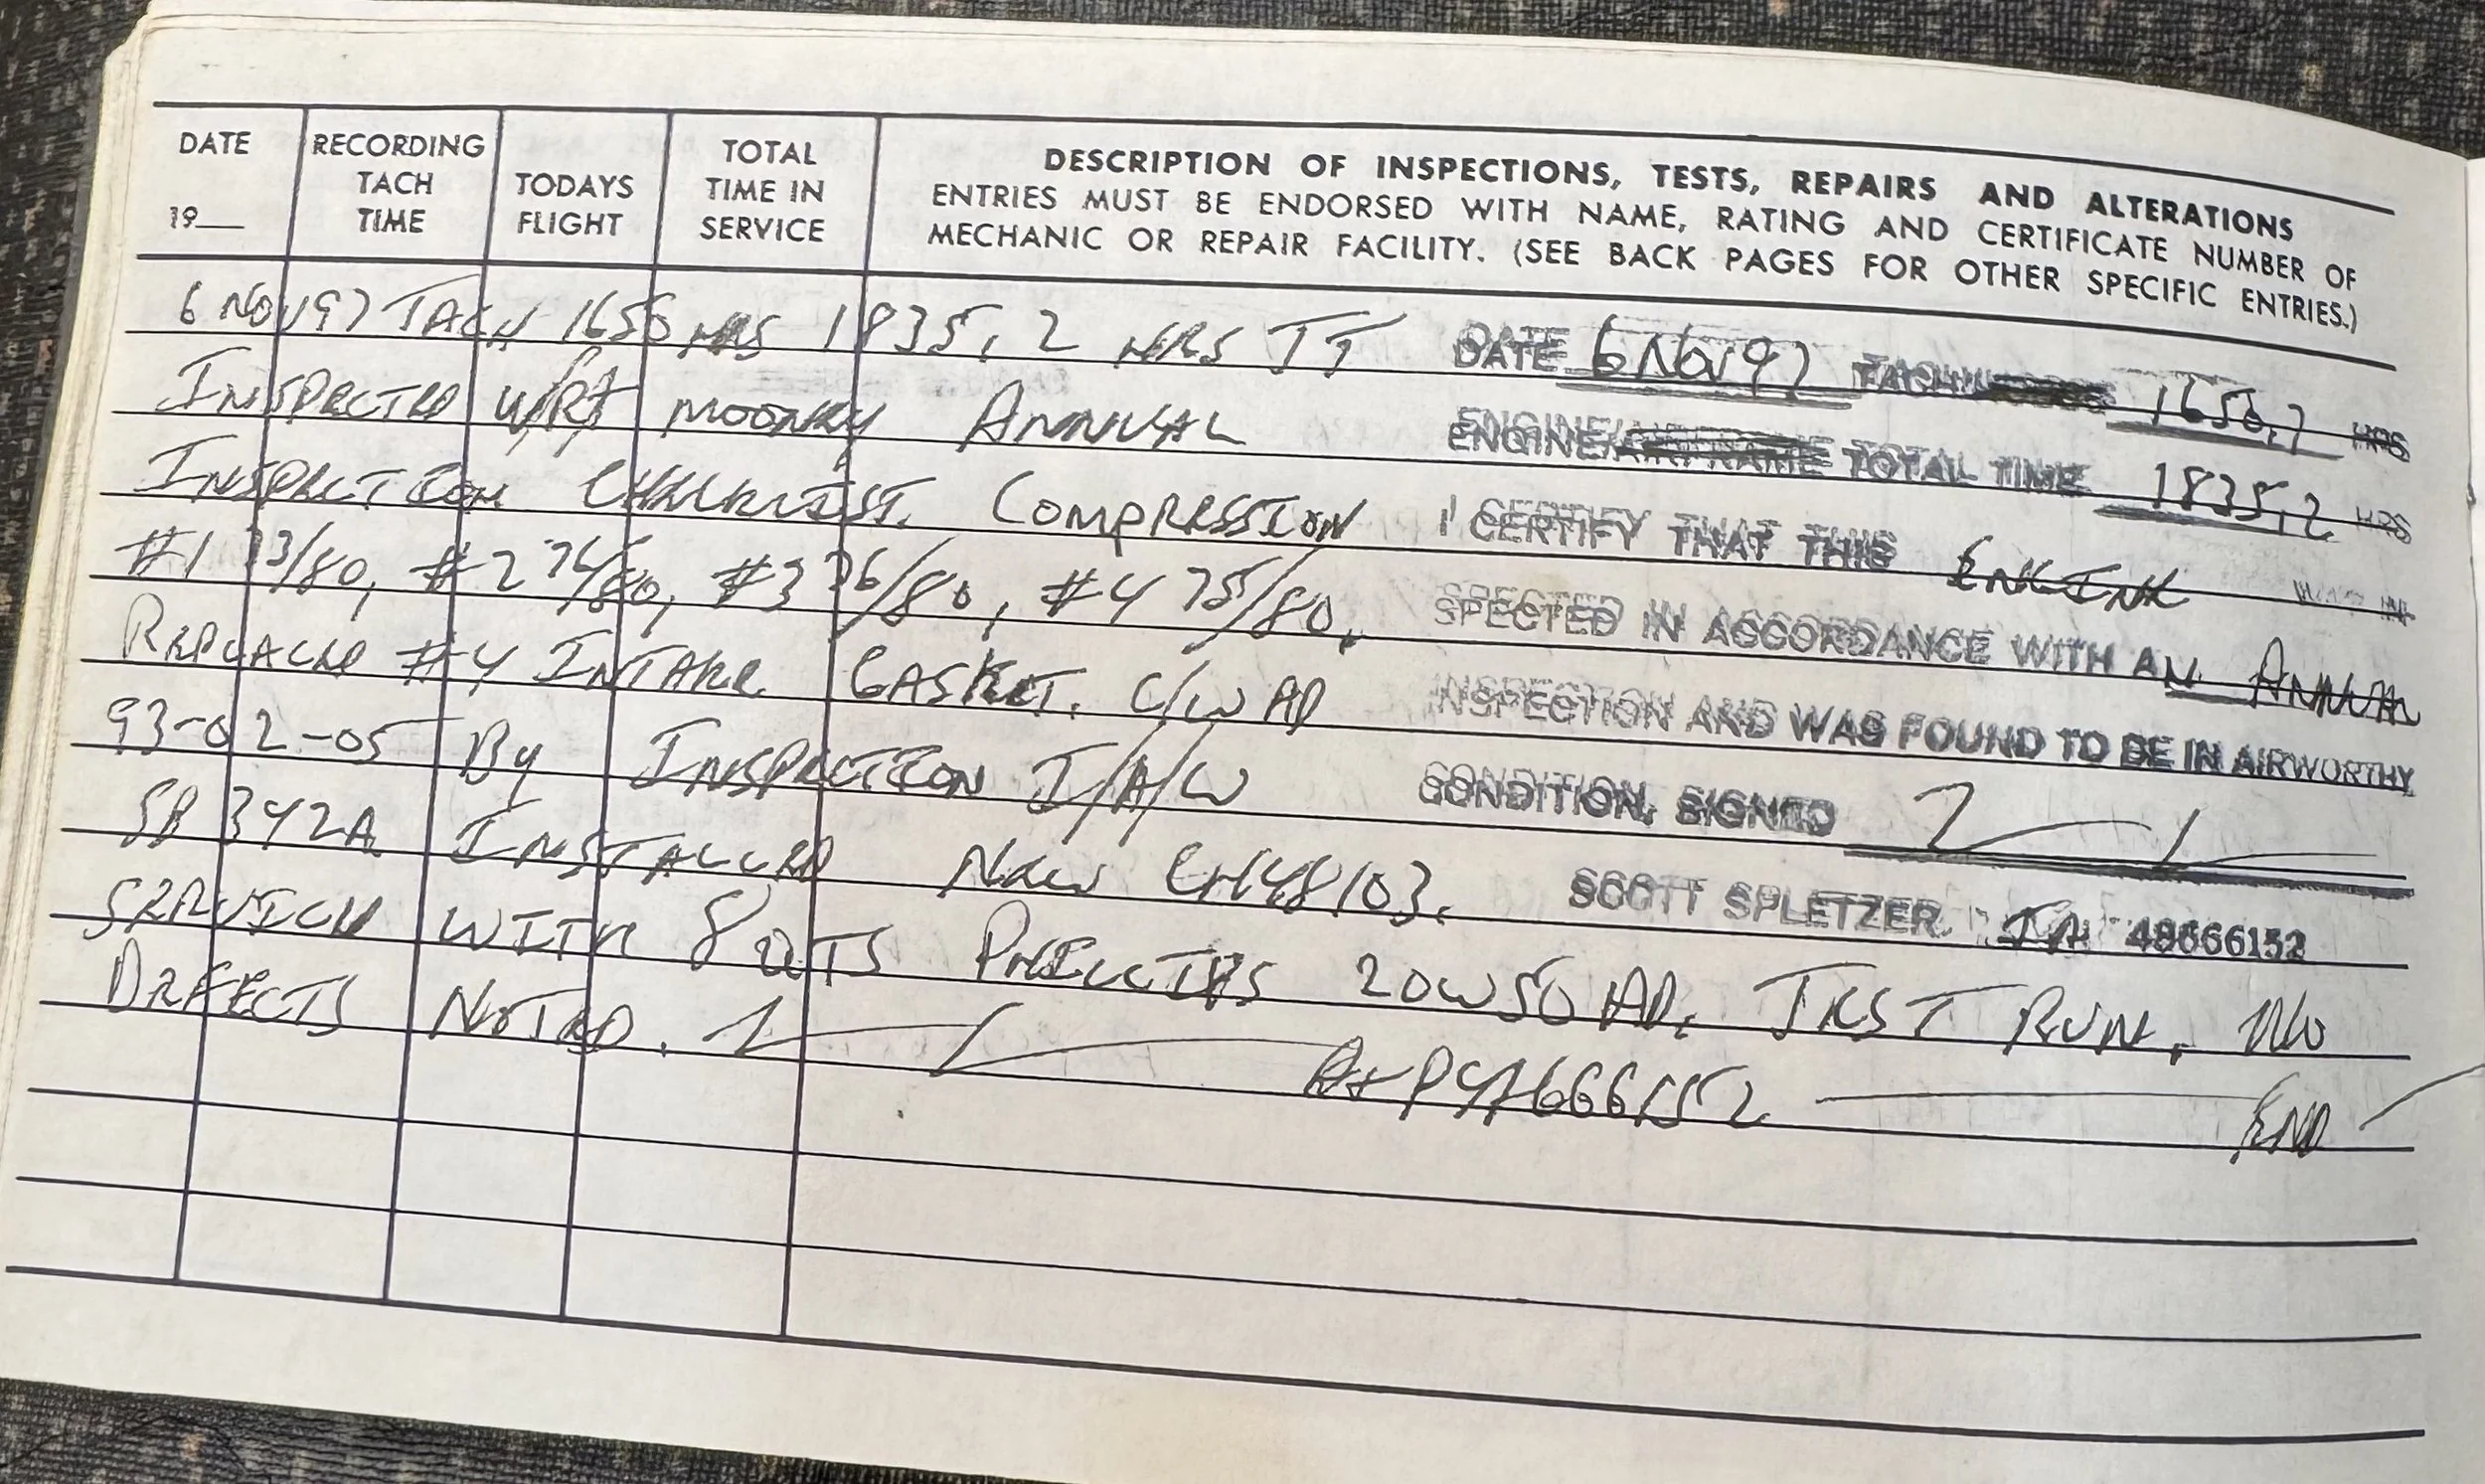 DATE
19__
RECORDING
TACH
TIME
TODAYS
FLIGHT
TOTAL
TIME IN
SERVICE
DESCRIPTION OF INSPECTIONS, TESTS, REPAIRS AND ALTERATIONS
ENTRIES MUST BE ENDORSED WITH NAME, RATING AND CERTIFICATE NUMBER OF
MECHANIC OR REPAIR FACILITY. (SEE BACK PAGES FOR OTHER SPECIFIC ENTRIES.)
6 NOV 97 TACH HRS 1835.2 HRS TT
INSPECTED MOONEY ANNUAL
INSPECTION CHECKLIST. COMPRESSION
#1 73/80, #2 76/80, #3 76/80, #4 75/80.
REPLACED #4 INTAKE GASKET. C/W AD
93-02-05 BY INSPECTION I/A/W
SB 342A INSTALLED NEW CH48103.
SERVICED WITH 8 QTS PHILLIPS 20W50 AD. TEST RUN. NO
DEFECTS NOTED. A+P END
DATE 6 NOV 97 TACH HRS
ENGINE/AIRFRAME TOTAL TIME 1835.2 HRS
I CERTIFY THAT THIS ENGINE WAS IN-
SPECTED IN ACCORDANCE WITH AN ANNUAL
INSPECTION AND WAS FOUND TO BE IN AIRWORTHY
CONDITION. SIGNED
SCOTT SPLETZER IA